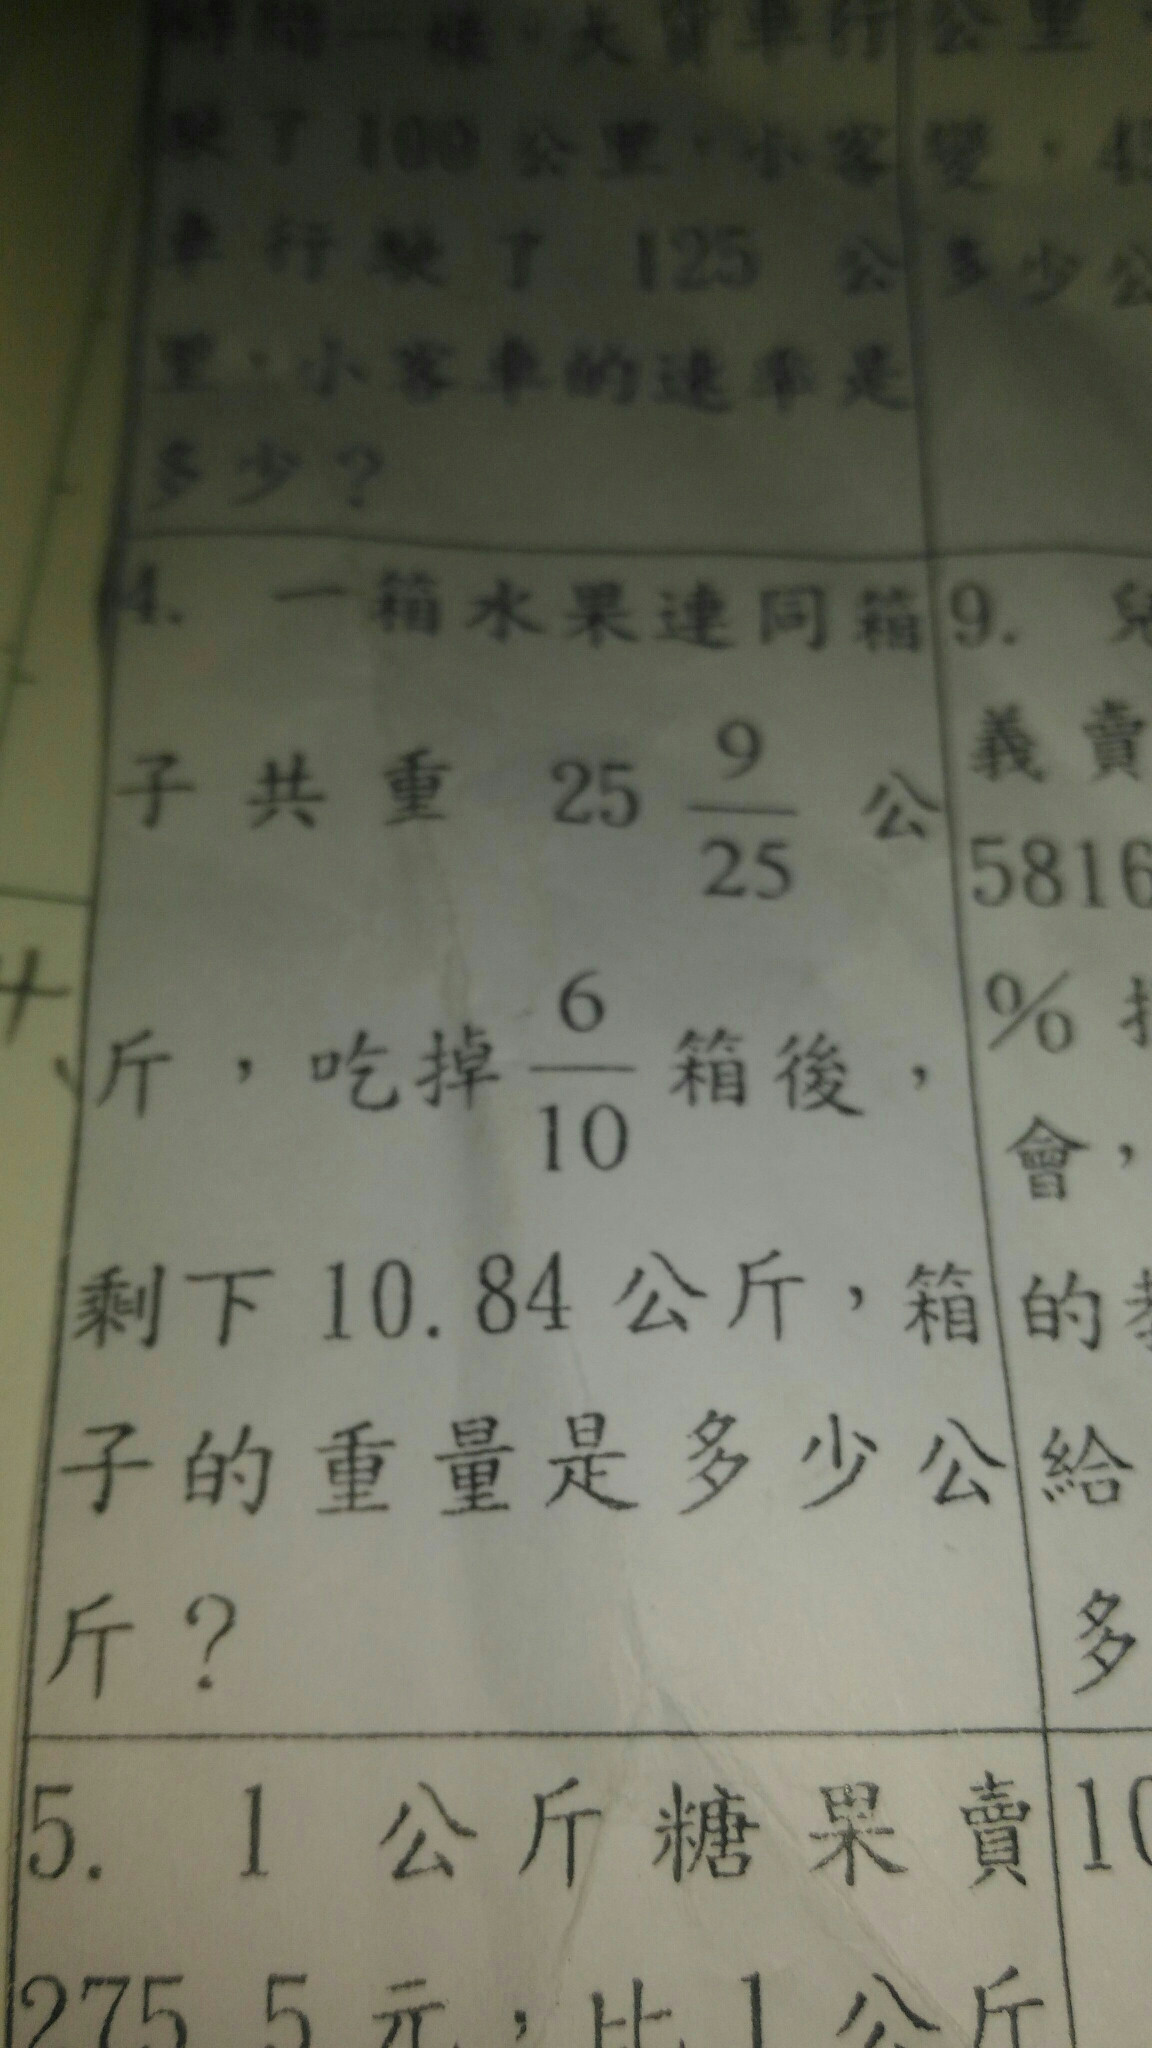 大貨車行
駛了 100 公里,小客
車行駛了 125 公
里,小客車的速率是
多少?
4. 一箱水果連同箱
子共重 25 9/25 公
斤,吃掉 6/10 箱後,
剩下 10.84 公斤,箱
子的重量是多少公
斤?
5. 1 公斤糖果賣
275.5 元,比 1 公斤
公里
變,
多少公
9.
義賣
5816
%
會,
的
給
多
10